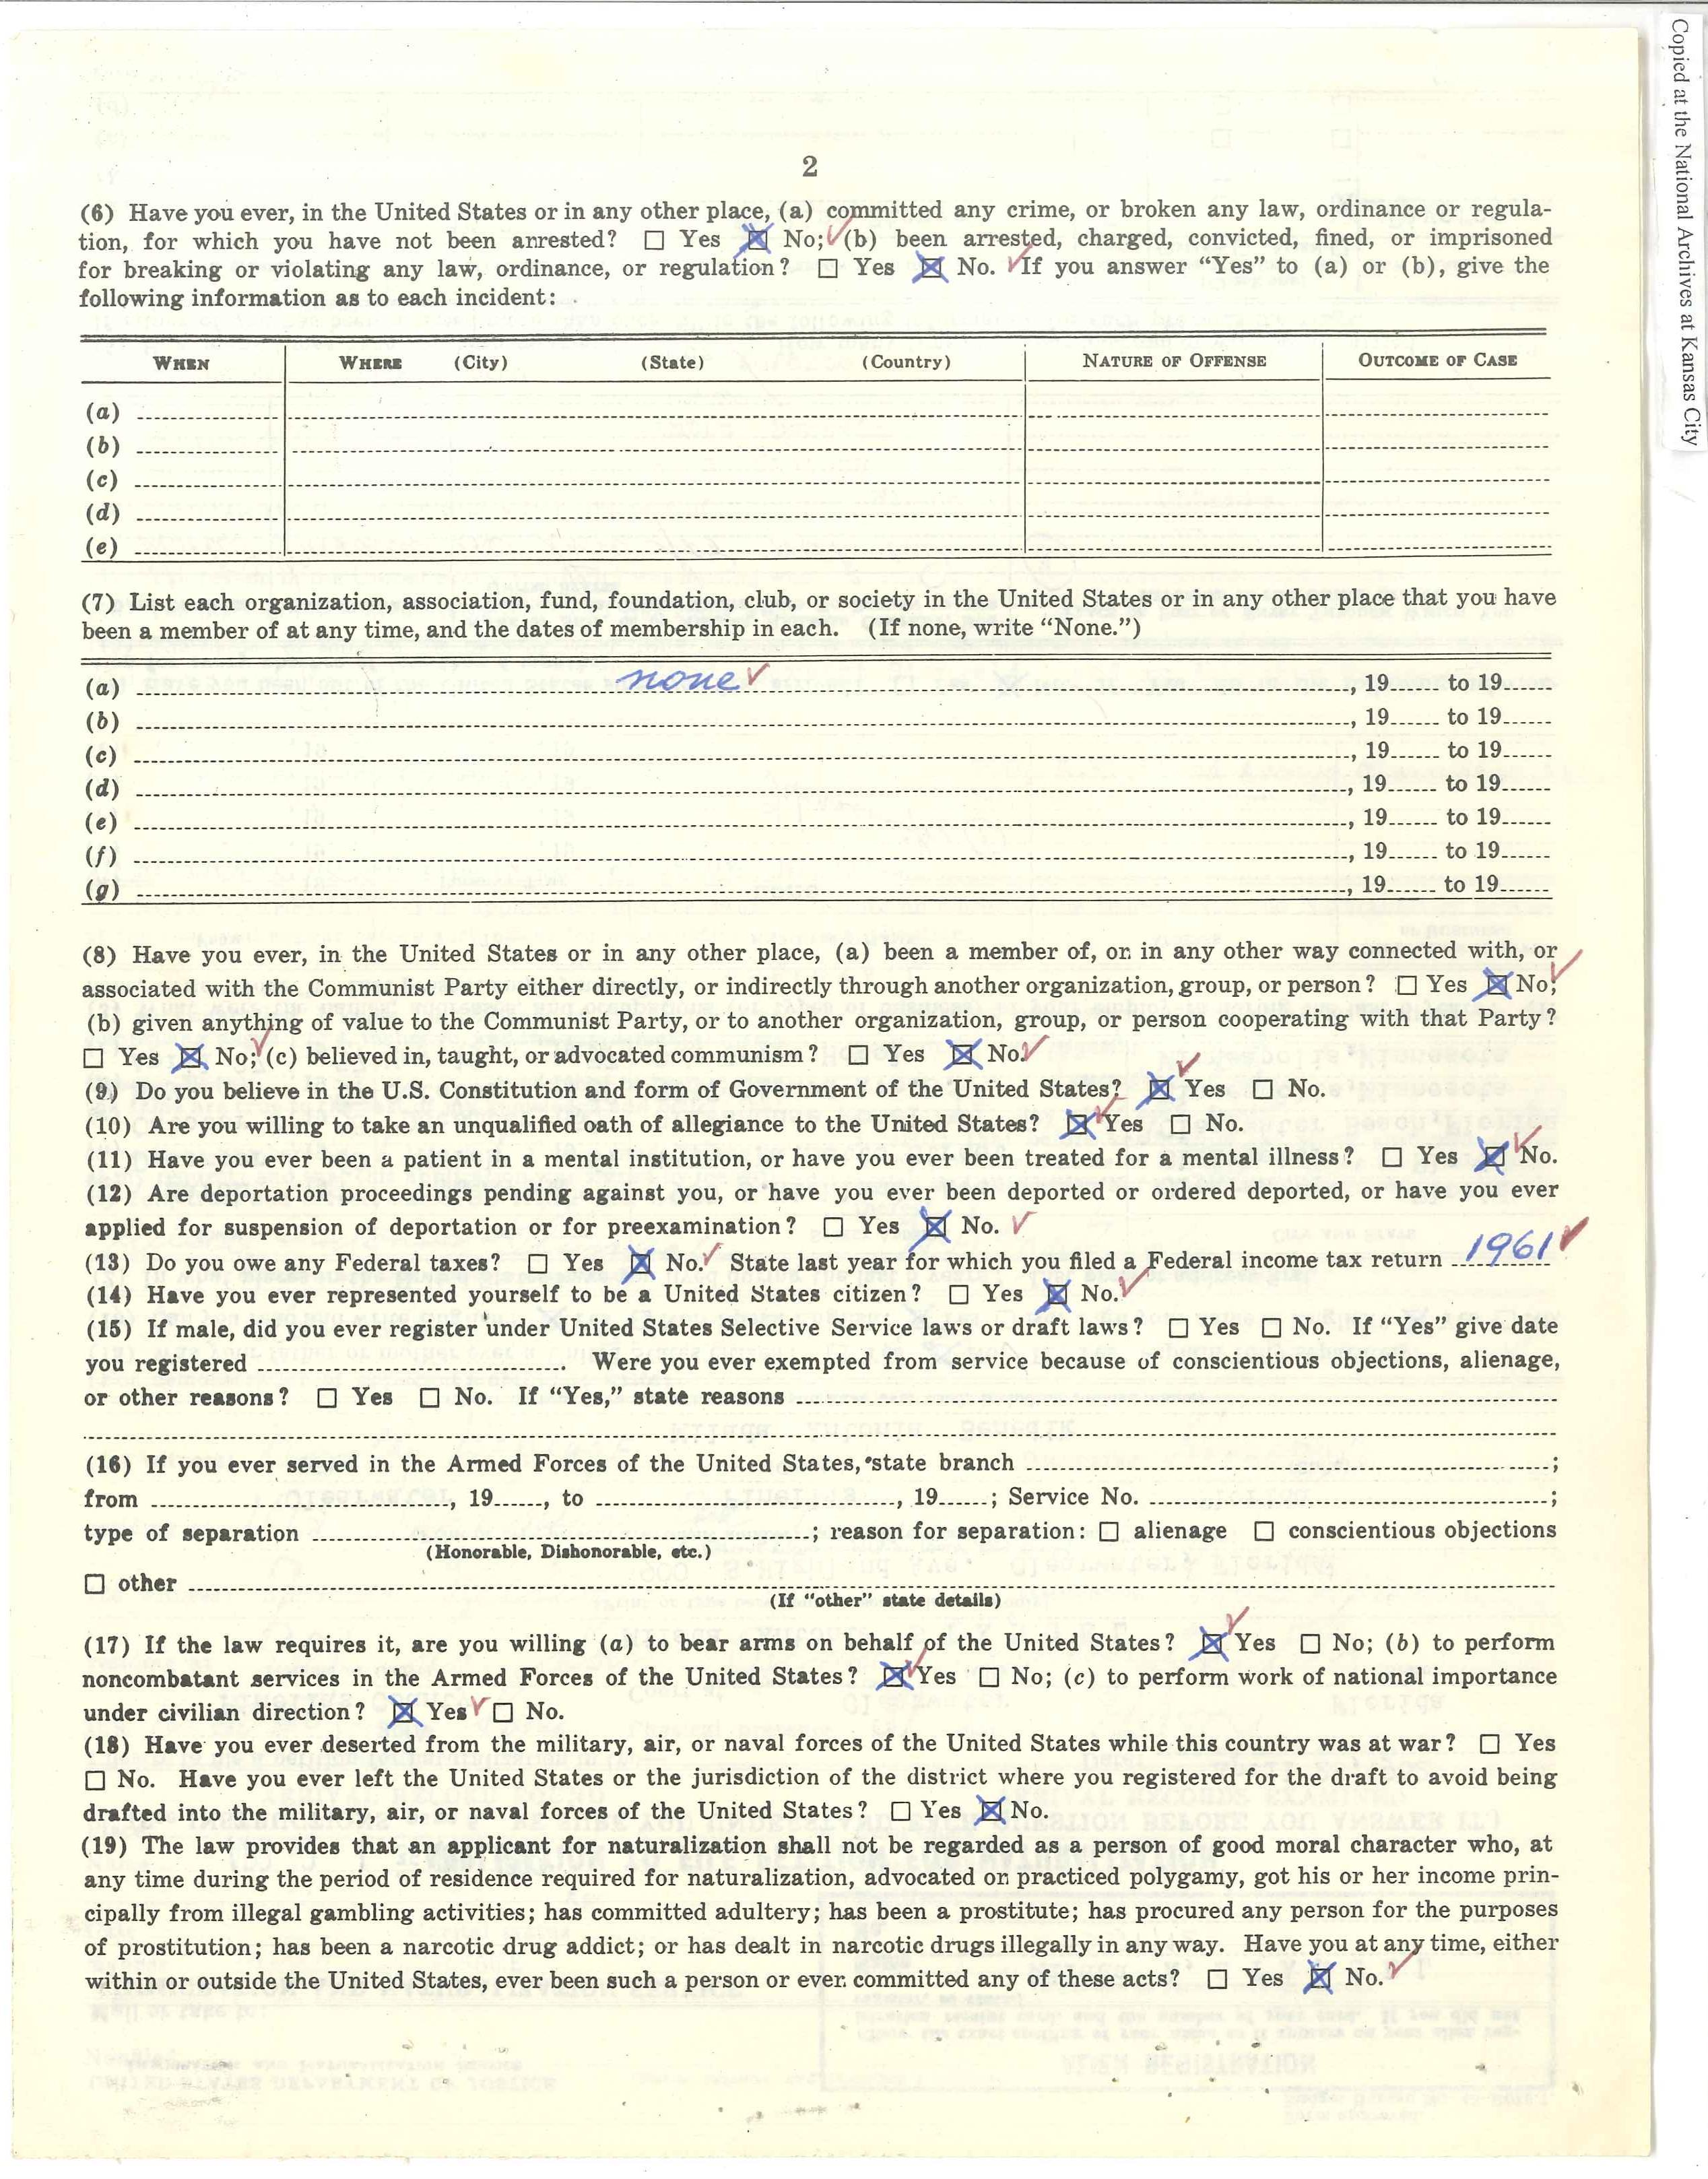 Copied at the National Archives at Kansas City
2
(6) Have you ever, in the United States or in any other place, (a) committed any crime, or broken any law, ordinance or regula-
tion, for which you have not been arrested? ☐ Yes ☒ No; ✓ (b) been arrested, charged, convicted, fined, or imprisoned
for breaking or violating any law, ordinance, or regulation? ☐ Yes ☒ No. ✓ If you answer "Yes" to (a) or (b), give the
following information as to each incident:
WHEN WHERE (City) (State) (Country) NATURE OF OFFENSE OUTCOME OF CASE
(a)
(b)
(c)
(d)
(e)
(7) List each organization, association, fund, foundation, club, or society in the United States or in any other place that you have
been a member of at any time, and the dates of membership in each. (If none, write "None.")
(a) none ✓ , 19...... to 19......
(b) , 19...... to 19......
(c) , 19...... to 19......
(d) , 19...... to 19......
(e) , 19...... to 19......
(f) , 19...... to 19......
(g) , 19...... to 19......
(8) Have you ever, in the United States or in any other place, (a) been a member of, or in any other way connected with, or
associated with the Communist Party either directly, or indirectly through another organization, group, or person? ☐ Yes ☒ No; ✓
(b) given anything of value to the Communist Party, or to another organization, group, or person cooperating with that Party?
☐ Yes ☒ No; ✓ (c) believed in, taught, or advocated communism? ☐ Yes ☒ No. ✓
(9) Do you believe in the U.S. Constitution and form of Government of the United States? ☒ Yes ✓ ☐ No.
(10) Are you willing to take an unqualified oath of allegiance to the United States? ☒ Yes ✓ ☐ No.
(11) Have you ever been a patient in a mental institution, or have you ever been treated for a mental illness? ☐ Yes ☒ No. ✓
(12) Are deportation proceedings pending against you, or have you ever been deported or ordered deported, or have you ever
applied for suspension of deportation or for preexamination? ☐ Yes ☒ No. ✓
(13) Do you owe any Federal taxes? ☐ Yes ☒ No. ✓ State last year for which you filed a Federal income tax return 1961 ✓
(14) Have you ever represented yourself to be a United States citizen? ☐ Yes ☒ No. ✓
(15) If male, did you ever register under United States Selective Service laws or draft laws? ☐ Yes ☐ No. If "Yes" give date
you registered ............ Were you ever exempted from service because of conscientious objections, alienage,
or other reasons? ☐ Yes ☐ No. If "Yes," state reasons
(16) If you ever served in the Armed Forces of the United States, state branch ............;
from ............, 19......, to ............, 19......; Service No. ............;
type of separation ............; reason for separation: ☐ alienage ☐ conscientious objections
(Honorable, Dishonorable, etc.)
☐ other
(If "other" state details)
(17) If the law requires it, are you willing (a) to bear arms on behalf of the United States? ☒ Yes ✓ ☐ No; (b) to perform
noncombatant services in the Armed Forces of the United States? ☒ Yes ✓ ☐ No; (c) to perform work of national importance
under civilian direction? ☒ Yes ✓ ☐ No.
(18) Have you ever deserted from the military, air, or naval forces of the United States while this country was at war? ☐ Yes
☐ No. Have you ever left the United States or the jurisdiction of the district where you registered for the draft to avoid being
drafted into the military, air, or naval forces of the United States? ☐ Yes ☒ No.
(19) The law provides that an applicant for naturalization shall not be regarded as a person of good moral character who, at
any time during the period of residence required for naturalization, advocated or practiced polygamy, got his or her income prin-
cipally from illegal gambling activities; has committed adultery; has been a prostitute; has procured any person for the purposes
of prostitution; has been a narcotic drug addict; or has dealt in narcotic drugs illegally in any way. Have you at any time, either
within or outside the United States, ever been such a person or ever committed any of these acts? ☐ Yes ☒ No. ✓